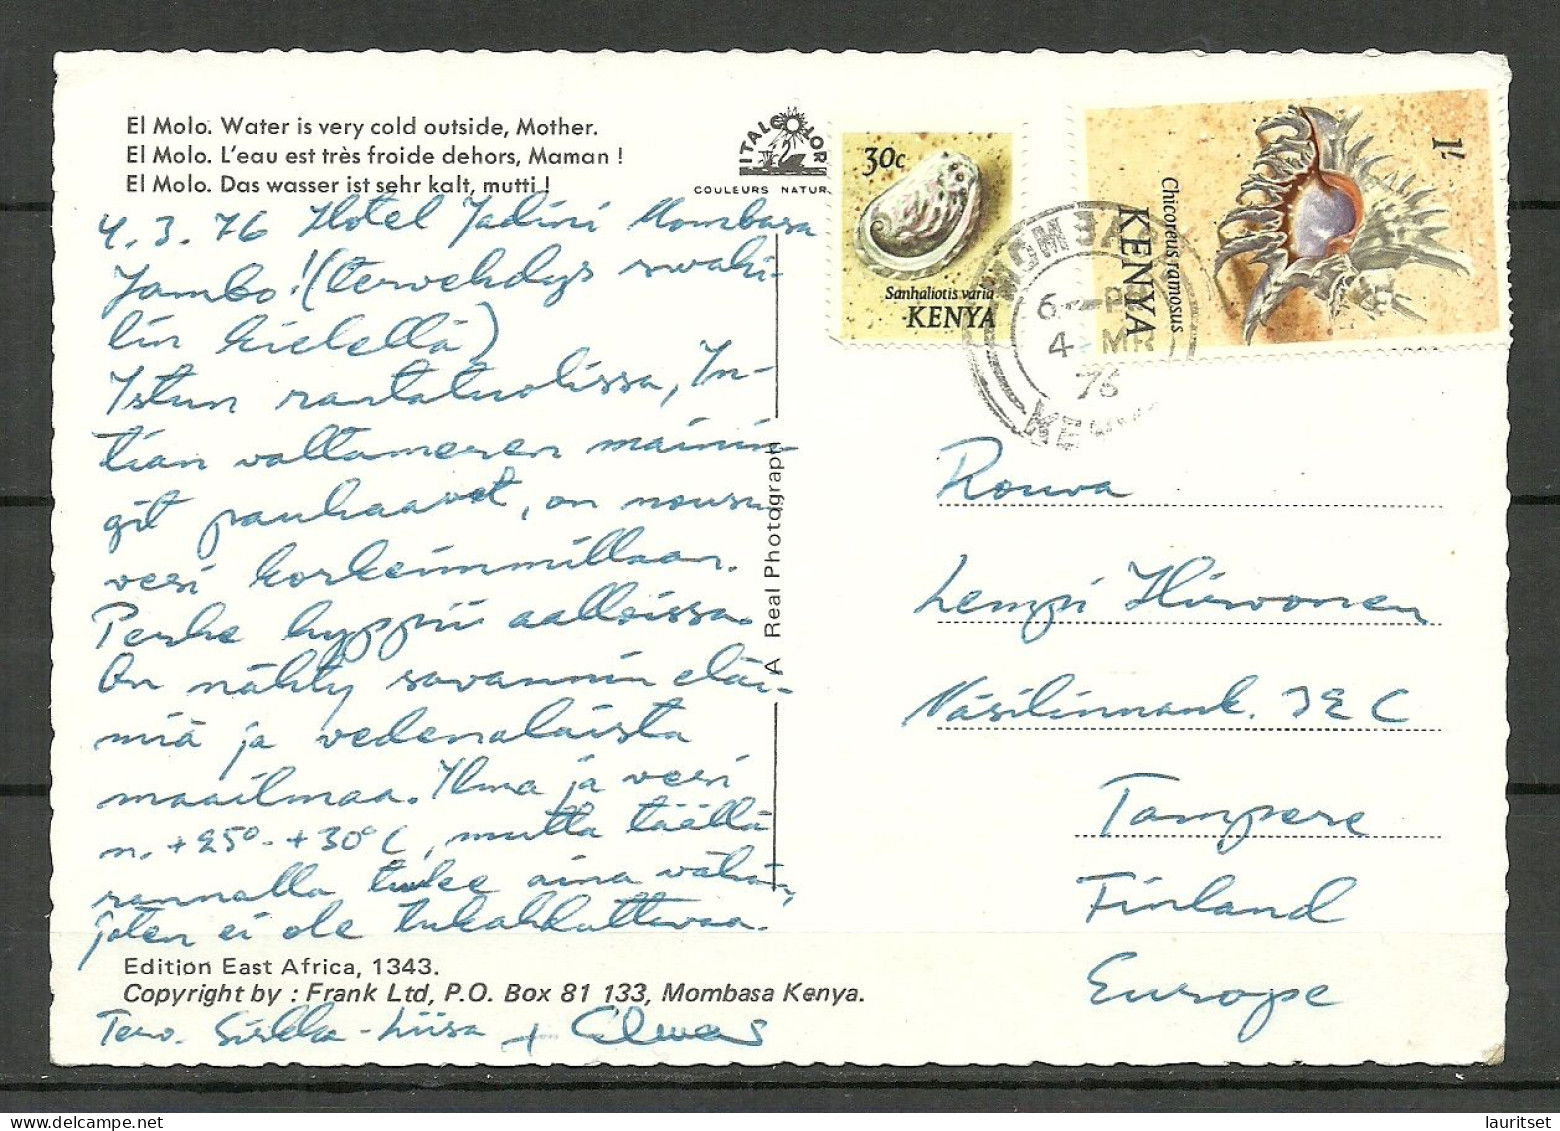 El Molo. Water is very cold outside, Mother.
El Molo. L'eau est très froide dehors, Maman !
El Molo. Das wasser ist sehr kalt, mutti !
ITALCOLOR
COULEURS NATUR.
30c
Sanhaliotis varia
KENYA
1/-
Chicoreus ramosus
KENYA
MOMBA
6 - P
4 MR
76
KENYA
4.3.76 Hotel Jadini Mombasa
Jambo! (tervehdys swahi-
lin kielellä)
Istun rantatuolissa, In-
tian valtameren mainin-
git pauhaavat, on nousu-
vesi korkeimmillaan.
Perhe hyppii aalloissa.
On nähty savannin eläi-
miä ja vedenalaista
maailmaa. Ilma ja vesi
n. +25° - +30°C, mutta täällä
rannalla tulee aina vähän,
joten ei ole tukahduttavaa.
A Real Photograph
Edition East Africa, 1343.
Copyright by : Frank Ltd, P.O. Box 81 133, Mombasa Kenya.
Terv. Sirkka-Liisa +
Rouva
Lempi Hirvonen
Väsilinnank. 12 C
Tampere
Finland
Europe
lauritset